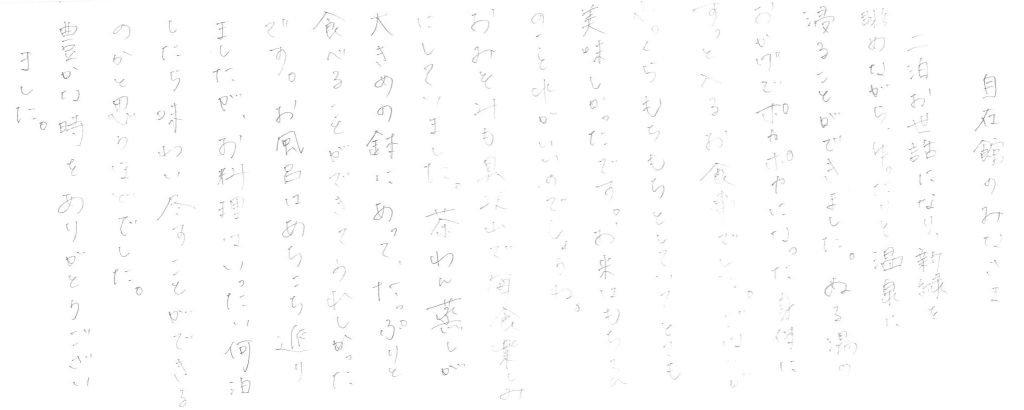 自在館のみなさま
二泊お世話になり、新緑を
眺めながら、ゆったりと温泉に
浸ることができました。ぬる湯の
おかげでポカポカになった身体に
すっと入るお食事でした。ごはんが
ふっくらもちもちとしていてとても
美味しかったです。お米はもちろん
のこと水がいいのでしょうね。
おみそ汁も具沢山で毎食楽しみ
にしていました。茶わん蒸しが
大きめの鉢にあって、たっぷりと
食べることができてうれしかった
です。お風呂はあちこち巡り
ましたが、お料理はいったい何泊
したら味わい尽すことができる
のかと思うほどでした。
豊かな時をありがとうござい
ました。